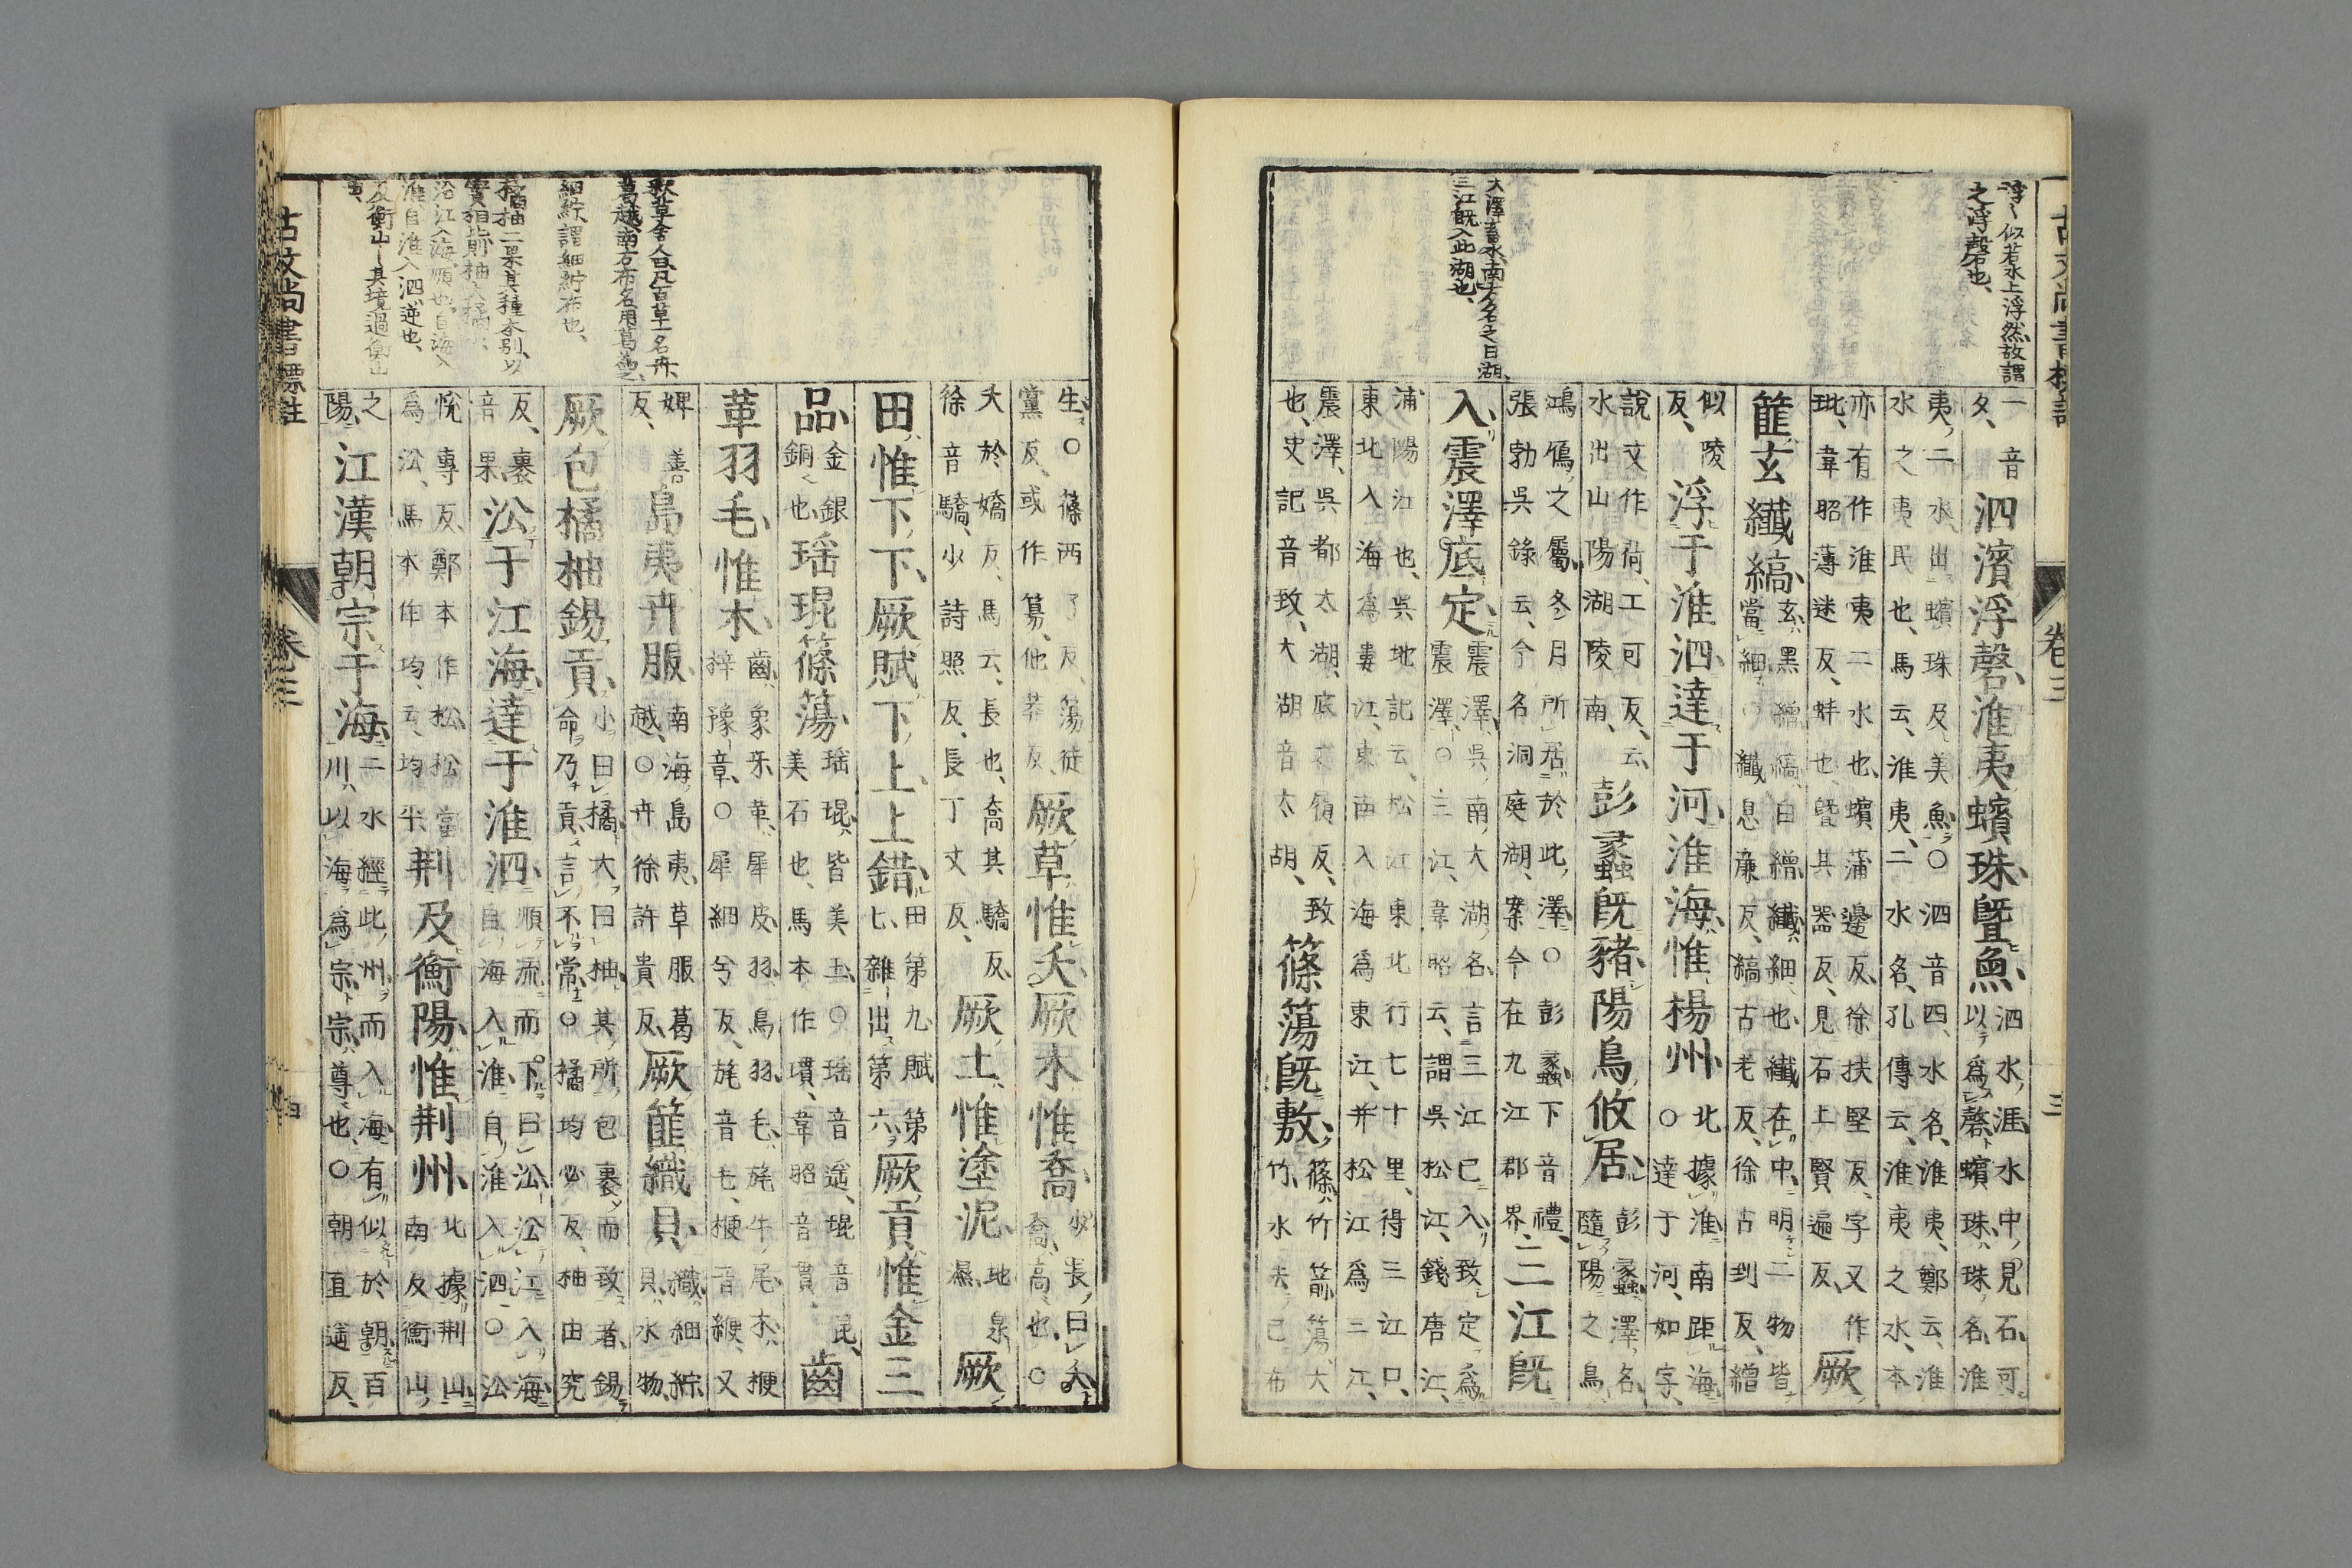 浮〻似若水上浮然故謂
之浮磬也、
大澤畜水、南方名之曰湖、
三江既入此湖也、
夕、一音泗濱浮磬、淮夷蠙珠曁魚、泗水涯、水中見石可
以爲磬、蠙珠、珠名、淮
夷、二水、出蠙珠及美魚○泗音四、水名、淮夷、鄭云、淮
水之夷民也、馬云、淮夷、二水名、孔傳云、淮夷之水、本
亦有作淮夷二水也、蠙蒲邊反、徐扶堅反、字又作
玭、韋昭薄迷反、蚌也、曁其器反、見石上賢遍反、厥
篚玄纖縞、玄、黑繒、縞、白繒、纖、細也、纖在中、明二物皆
當細、纖息廉反、縞古老反、徐古到反、繒
似陵反、浮于淮泗、達于河、淮海惟楊州北據淮南距海、
○達于河、如字、
說文作菏、工可反、云、
水出山陽湖陵南、彭蠡既豬、陽鳥攸居、彭蠡、澤名、
隨陽之鳥、
鴻鴈之屬、冬月所居於此澤、○彭蠡下音禮、
張勃吳錄云、今名洞庭湖、案今在九江郡界、三江既
入、震澤底定、震澤、吳南大湖名、言三江已入、致定爲
震澤、○三江、韋昭云、謂吳松江、錢唐江、
浦陽江也、吳地記云、松江東北行七十里、得三江口、
東北入海爲婁江、東南入海爲東江、并松江爲三江、
震澤、吳都太湖、底之履反、致
也、史記音致、大湖音太胡、篠簜既敷、篠、竹箭、簜、大
竹、水去已布
卷三
三
獸草舍人曰凡百草一名卉、
葛越南方布名用葛爲之、
細紵謂細紵布也、
橘柚二果其種本別、以
實相箭柚大橘小
沿江入海、順也、自海入
淮自淮入泗、逆也、
及衡山〻其境過衡山
生、○篠西了反、簜徒
黨反、或作簜、他莽反、厥草惟夭、厥木惟喬、少長曰夭、
喬、高也、○
夭於嬌反、馬云、長也、喬其驕反、
徐音驕、少詩照反、長丁丈反、厥土惟塗泥、地泉
濕、厥
田惟下下、厥賦下上、上錯、田第九、賦第
七、雜出第六、厥貢惟金三
品、金銀
銅也、瑤琨篠簜、瑤琨、皆美玉、○瑤音遥、琨音昆、
美石也、馬本作瑻、韋昭音貫、齒
革羽毛、惟木、齒、象牙、革、犀皮、羽、鳥羽、毛、旄牛尾、木、楩
梓豫章、○犀細兮反、旄音毛、楩音緶、又
婢善
反、島夷卉服、南海島夷、草服葛
越、○卉徐許貴反、厥篚織貝、織、細綜、
貝、水物、
厥包橘柚錫貢、小曰橘、大曰柚、其所包裹而致者、錫
命乃貢、言不常、○橘均必反、柚由究
反、裹
音果、㳂于江海、達于淮泗、順流而下曰㳂、㳂江入海、
自海入淮、自淮入泗、○㳂
悅專反、鄭本作松、松當
爲㳂、馬本作均、云、均平、荆及衡陽惟荆州、北據荆山、
南及衡山
之
陽、江漢朝宗于海、二水經此州而入海有似於朝、百
川以海爲宗、宗、尊也、○朝直遥反、
古文尚書標註
卷三
四